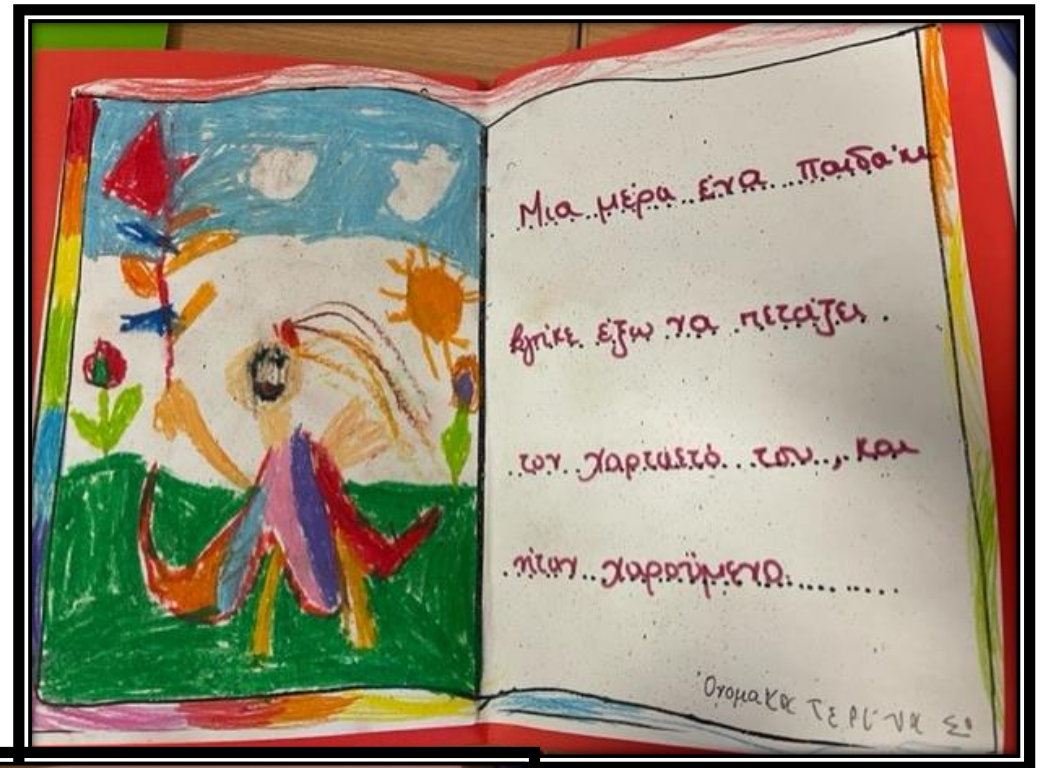 Μια μέρα ένα παιδάκι
βγήκε έξω να πετάξει
τον χαρταετό του, και
ήταν χαρούμενο
Όνομα ΚΑΤΕΡΙΝΑ ΣΟ